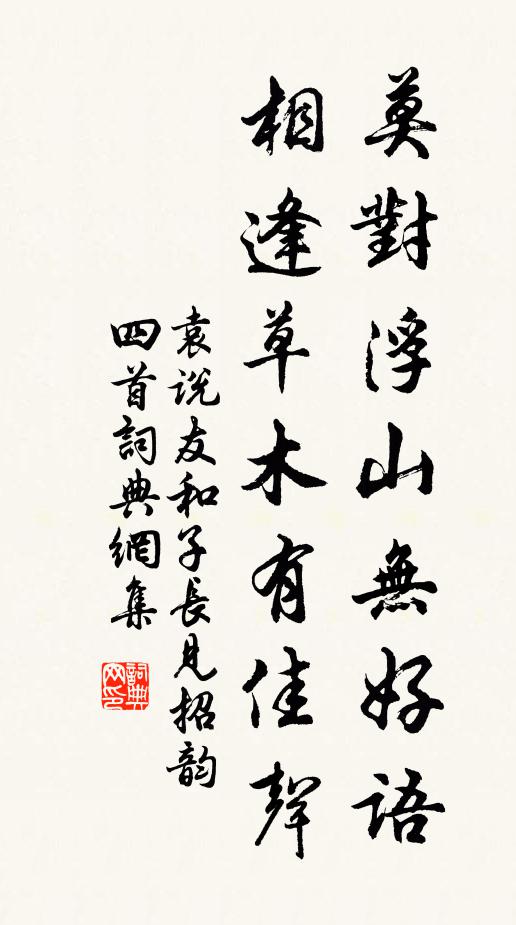 莫對浮山無好語
相逢草木有佳聲
袁說友和子長見招韵
四首詞典網集
詞典網印